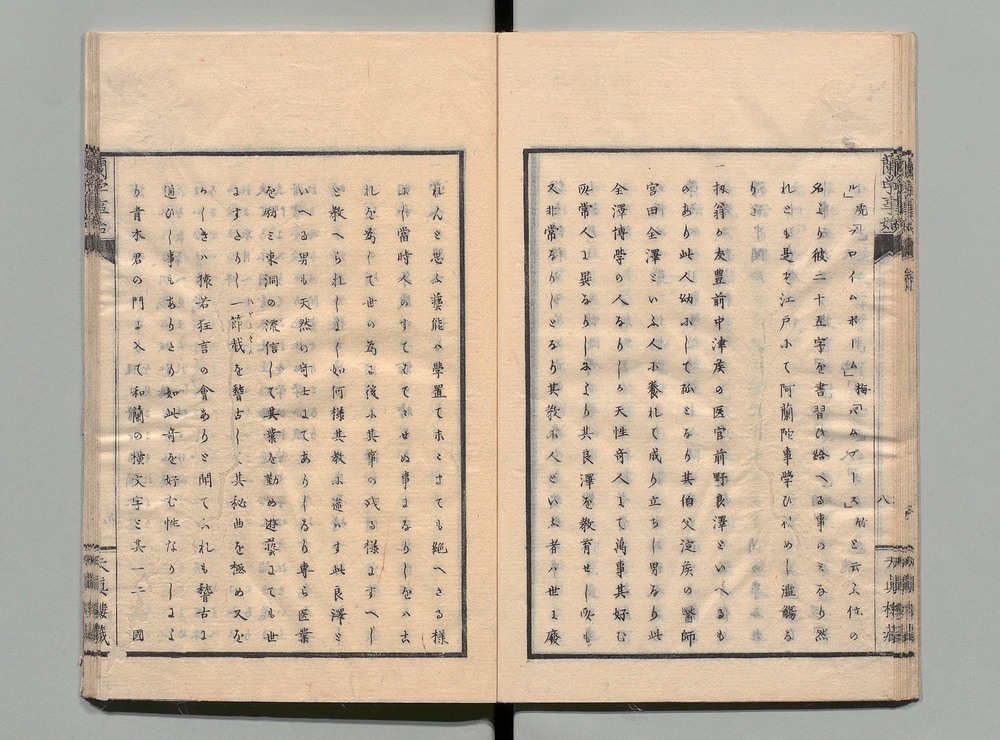 蘭学事始
ル」虎プロイムボーム」梅バムブース」竹と云ふ位の
名より彼二十五字を書習ひ始へる事のミなり然
れとも是を江戸にて阿蘭陀事学ひ初めし濫觴な
り
一扨翁か友豊前中津矦の医官前野良澤といへるも
のあり此人幼少して孤となり其伯父淀矦の醫師
宮田全澤といふ人に養れて成り立ちし男なり此
全澤博学の人なりしか天性奇人にて萬事其好む
所常人に異なりしにより其良澤を教育せし所も
又非常なりしとなり其教に人といふ者ハ世に廢
八
天真樓藏
れんと思ふ藝能ハ學置て末々までも絶へさる様
にし當時人のすてはててせぬ事になりしをハ去
れを為して世の為に後に其事の残る様にすへし
と教へられしよし如何様其教に違ハす此良澤と
いへる男も天然の奇士にてありしなり専ら医業
を励ミ東洞の流信して其業を勤め遊藝にても世
にすさりし一節截を稽古して其秘曲を極め又を
かしきハ猿若狂言の會ありと聞てこれも稽古に
通ひし事もありたり如此奇を好む性なりしによ
り青木君の門に入て和蘭の横文字と其一二 國
蘭学事始
天真樓藏